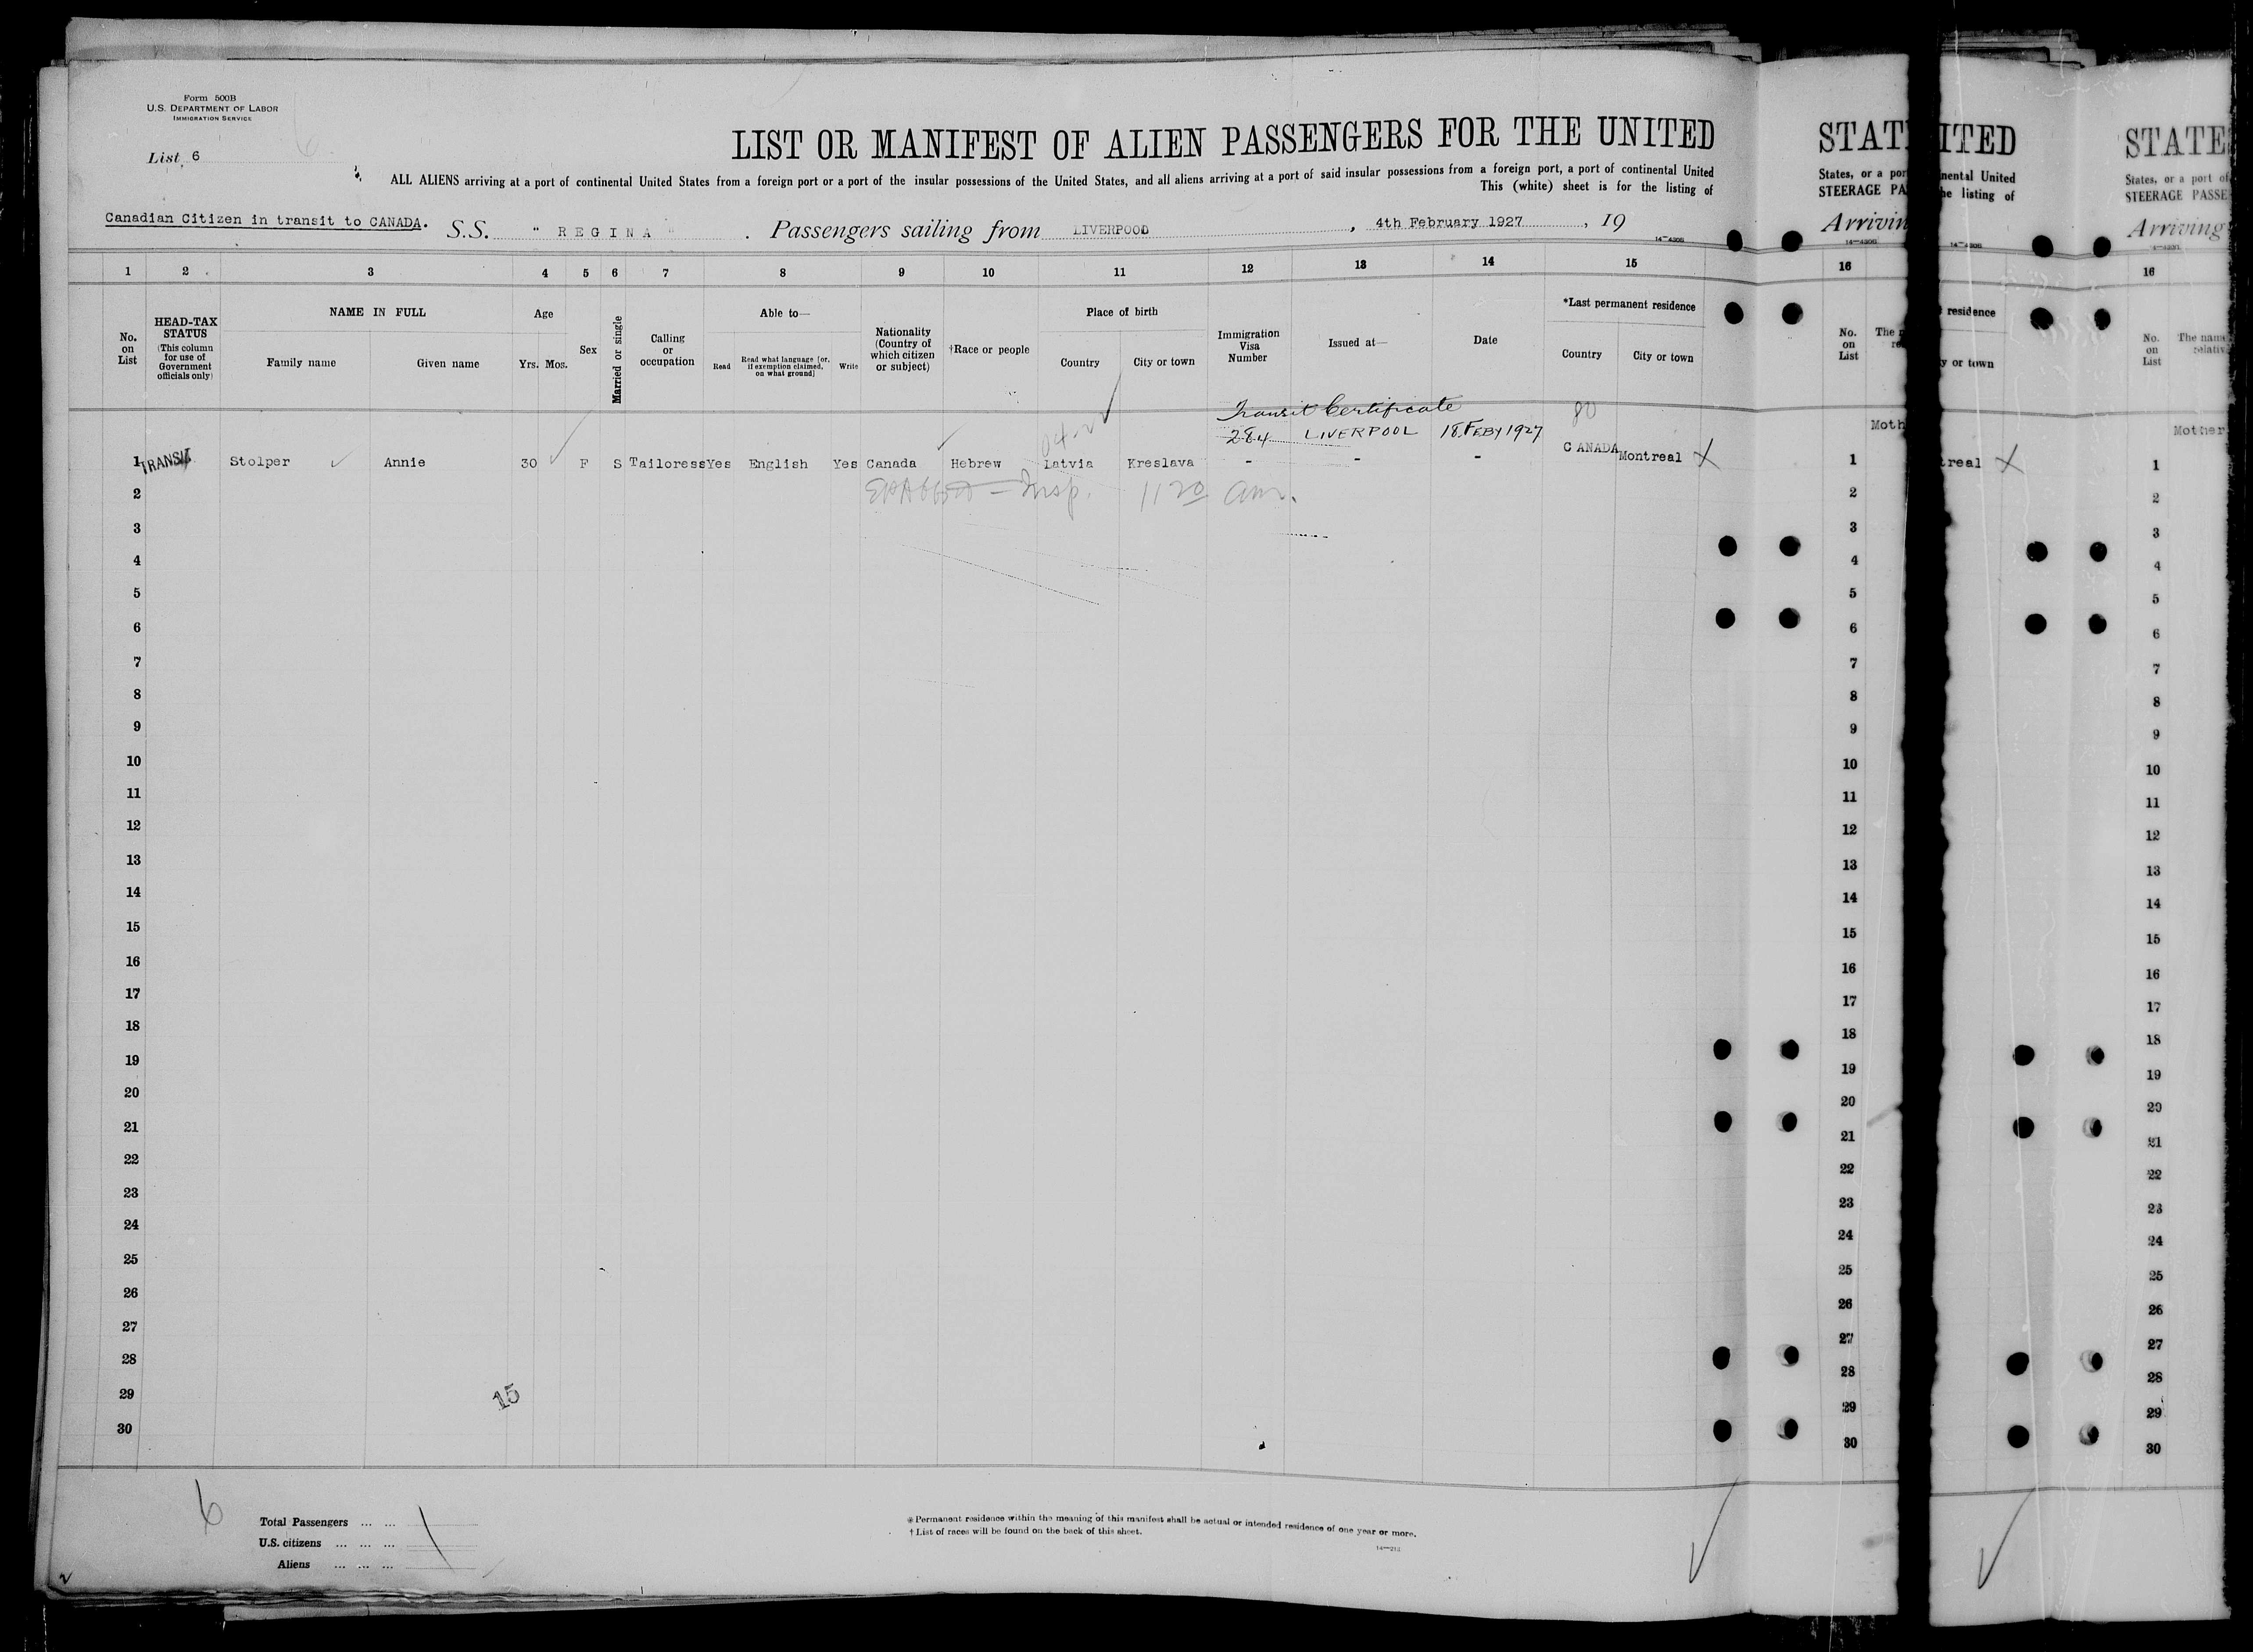 Form 500B
U.S. DEPARTMENT OF LABOR
IMMIGRATION SERVICE
List 6
LIST OR MANIFEST OF ALIEN PASSENGERS FOR THE UNITED
ALL ALIENS arriving at a port of continental United States from a foreign port or a port of the insular possessions of the United States, and all aliens arriving at a port of said insular possessions from a foreign port, a port of continental United
This (white) sheet is for the listing of
Canadian Citizen in transit to CANADA. S.S. " REGINA " . Passengers sailing from LIVERPOOL, 4th February 1927, 19
14-4306
1 2 3 4 5 6 7 8 9 10 11 12 13 14 15
No. on List
HEAD-TAX STATUS (This column for use of Government officials only)
NAME IN FULL
Family name Given name
Age
Yrs. Mos.
Sex
Married or single
Calling or occupation
Able to—
Read Read what language [or, if exemption claimed, on what ground] Write
Nationality (Country of which citizen or subject)
†Race or people
Place of birth
Country City or town
Immigration Visa Number
Issued at—
Date
*Last permanent residence
Country City or town
Transit Certificate 80
284 LIVERPOOL 18. FEBY 1927
1 TRANSIT Stolper Annie 30 F S Tailoress Yes English Yes Canada Hebrew Latvia Kreslava - - - CANADA Montreal X
2 Insp. 11 20 am.
3
4
5
6
7
8
9
10
11
12
13
14
15
16
17
18
19
20
21
22
23
24
25
26
27
28
29
15
30
6
Total Passengers ... ...
U.S. citizens ... ... ...
Aliens ... ... ...
*Permanent residence within the meaning of this manifest shall be actual or intended residence of one year or more.
†List of races will be found on the back of this sheet.
14-213
STAT
States, or a por
STEERAGE PA
Arrivin
14-4306
16
No. on List
The n
re
Moth
1
2
3
4
5
6
7
8
9
10
11
12
13
14
15
16
17
18
19
20
21
22
23
24
25
26
27
28
29
30
ITED
nental United
he listing of
14-4306
residence
y or town
treal X
STATE
States, or a port of
STEERAGE PASSE
Arriving
16
No. on List
The name
relativ
Mother
1
2
3
4
5
6
7
8
9
10
11
12
13
14
15
16
17
18
19
20
21
22
23
24
25
26
27
28
29
30